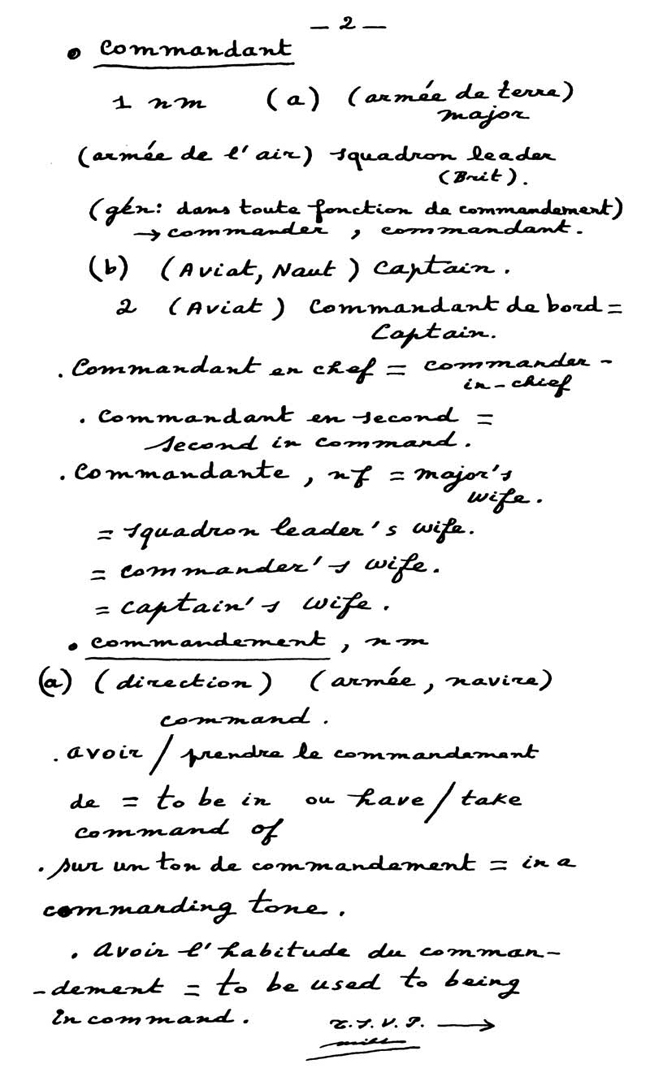 — 2 —
• Commandant
1 nm (a) (armée de terre)
major
(armée de l'air) squadron leader
(Brit).
(gén: dans toute fonction de commandement)
→ commander, commandant.
(b) (Aviat, Naut) Captain.
2 (Aviat) Commandant de bord =
Captain.
. Commandant en chef = commander-
in-chief
. Commandant en second =
second in command.
. Commandante, nf = major's
wife.
= squadron leader's wife.
= commander's wife.
= captain's wife.
• commandement, nm
(a) (direction) (armée, navire)
command.
. avoir / prendre le commandement
de = to be in ou have / take
command of
. sur un ton de commandement = in a
commanding tone.
. Avoir l'habitude du comman-
-dement = to be used to being
in command.
T.S.V.P. →